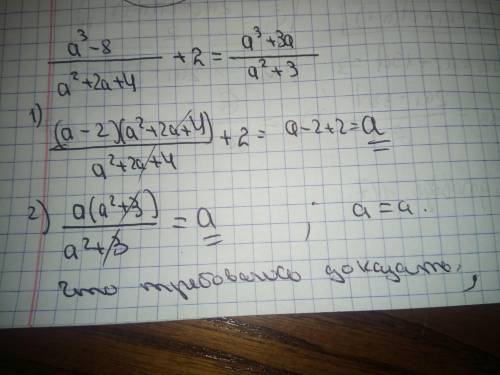 (a³-8)/(a²+2a+4) + 2 = (a³+3a)/(a²+3)
1) ((a-2)(a²+2a+4))/(a²+2a+4) + 2 = a-2+2=a
2) (a(a²+3))/(a²+3) = a ; a=a.
что требовалось доказать,